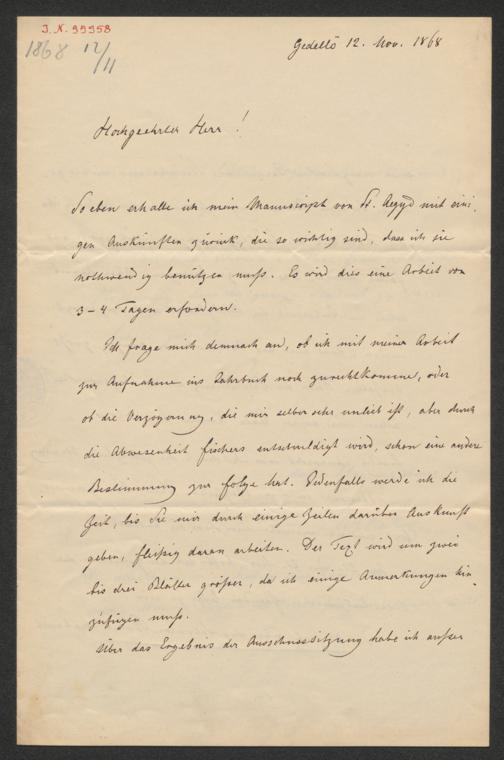 J. N. 99958
1868 12/11
Gedellö 12. Nov. 1868
Hochgeehrter Herr!
So eben erhalte ich mein Manuscript von St. Aegyd mit eini-
gen Auskünften zurük, die so wichtig sind, dass ich sie
nothwendig benützen muss. Es wird dies eine Arbeit von
3–4 Tagen erfordern.
Ich frage mich demnach an, ob ich mit meiner Arbeit
zur Aufnahme ins Jahrbuch noch zurechtkomme, oder
ob die Verzögerung, die mir selber sehr unlieb ist, aber durch
die Abwesenheit Fischers entschuldigt wird, schon eine andere
Bestimmung zur Folge hat. Jedenfalls werde ich die
Zeit, bis Sie mir durch einige Zeilen darüber Auskunft
geben, fleißig daran arbeiten. Der Text wird um zwei
bis drei Blätter größer, da ich einige Anmerkungen hin-
zufügen muss.
Über das Ergebnis der Ausschusssitzung habe ich ausser